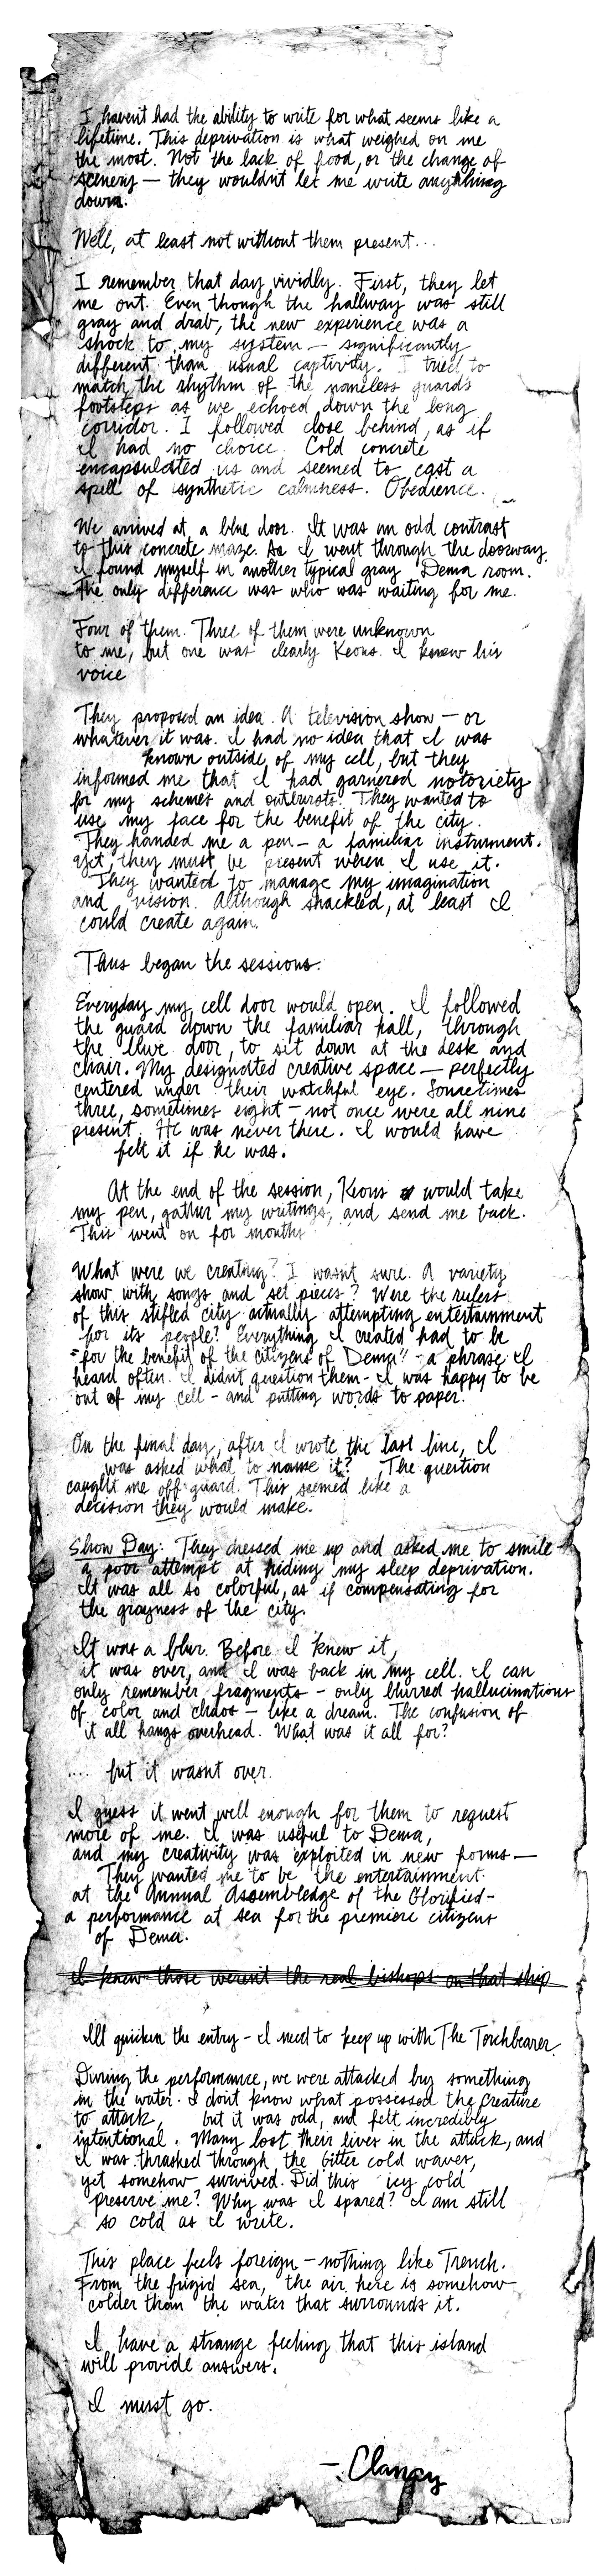 I haven't had the ability to write for what seems like a
lifetime. This deprivation is what weighed on me
the most. Not the lack of food, or the change of
scenery — they wouldn't let me write anything
down.
Well, at least not without them present...
I remember that day vividly. First, they let
me out. Even though the hallway was still
gray and drab, the new experience was a
shock to my system — significantly
different than usual captivity. I tried to
match the rhythm of the nameless guards
footsteps as we echoed down the long
corridor. I followed close behind, as if
I had no choice. Cold concrete
encapsulated us and seemed to cast a
spell of synthetic calmness. Obedience.
We arrived at a blue door. It was an odd contrast
to this concrete maze. As I went through the doorway
I found myself in another typical gray Dema room.
The only difference was who was waiting for me.
Four of them. Three of them were unknown
to me, but one was clearly Keons. I knew his
voice
They proposed an idea. A television show — or
whatever it was. I had no idea that I was
known outside of my cell, but they
informed me that I had garnered notoriety
for my schemes and outbursts. They wanted to
use my face for the benefit of the city.
They handed me a pen — a familiar instrument.
Yet, they must be present when I use it.
They wanted to manage my imagination
and vision. Although shackled, at least I
could create again.
Thus began the sessions.
Everyday my cell door would open. I followed
the guard down the familiar hall, through
the blue door, to sit down at the desk and
chair. My designated creative space — perfectly
centered under their watchful eye. Sometimes
three, sometimes eight — not once were all nine
present. He was never there. I would have
felt it if he was.
At the end of the session, Keons would take
my pen, gather my writings, and send me back.
This went on for months
What were we creating? I wasn't sure. A variety
show with songs and set pieces? Were the rulers
of this stifled city actually attempting entertainment
for its people? Everything I created had to be
"for the benefit of the citizens of Dema" - a phrase I
heard often. I didn't question them - I was happy to be
out of my cell - and putting words to paper.
On the final day, after I wrote the last line, I
was asked what to name it? The question
caught me off guard. This seemed like a
decision they would make.
Show Day: They dressed me up and asked me to smile
a poor attempt at hiding my sleep deprivation.
It was all so colorful, as if compensating for
the grayness of the city.
It was a blur. Before I knew it,
it was over, and I was back in my cell. I can
only remember fragments - only blurred hallucinations
of color and chaos — like a dream. The confusion of
it all hangs overhead. What was it all for?
.... but it wasn't over.
I guess it went well enough for them to request
more of me. I was useful to Dema,
and my creativity was exploited in new forms —
They wanted me to be the entertainment
at the Annual Assemblage of the Glorified -
a performance at sea for the premiere citizens
of Dema.
I knew those weren't the real bishops on that ship
Ill quicken the entry - I need to keep up with The Torchbearer.
During the performance, we were attacked by something
in the water. I don't know what possessed the creature
to attack, but it was odd, and felt incredibly
intentional. Many lost their lives in the attack, and
I was thrashed through the bitter cold waves,
yet somehow survived. Did this icy cold
preserve me? Why was I spared? I am still
so cold as I write.
This place feels foreign — nothing like Trench.
From the frigid sea, the air here is somehow
colder than the water that surrounds it.
I have a strange feeling that this island
will provide answers.
I must go.
— Clancy